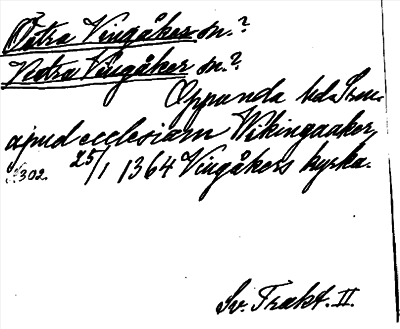 Östra Vingåker sn.?
Västra Vingåker sn.?
Oppunda hd.
apud ecclesiam Wikingaaker
s. 302. 25/1 1364 Vingåkers kyrka.
Sv. Trakt. II.